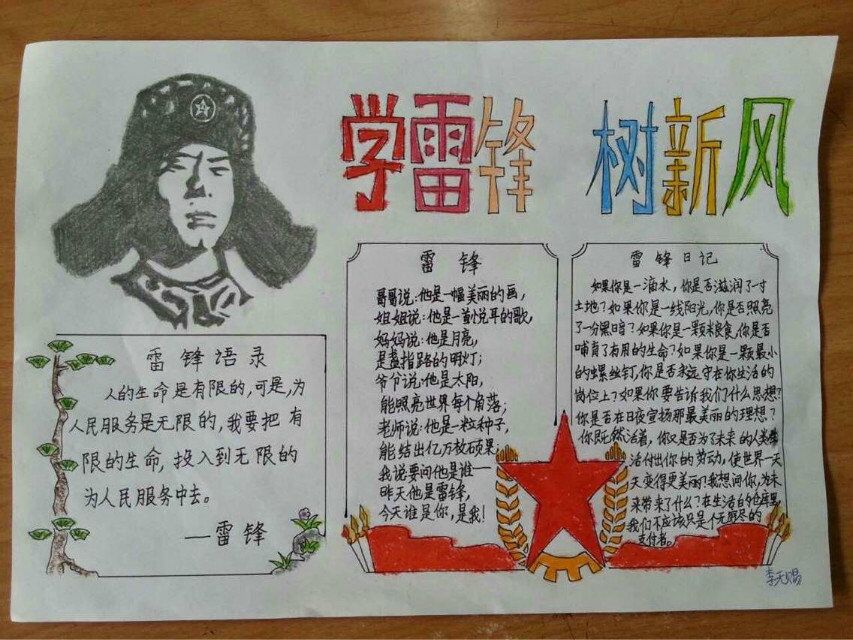 学雷锋 树新风
雷锋语录
人的生命是有限的,可是,为
人民服务是无限的,我要把有
限的生命,投入到无限的
为人民服务中去。
—雷锋
雷锋
哥哥说:他是一幅美丽的画,
姐姐说:他是一首悦耳的歌,
妈妈说:他是月亮,
是盏指路的明灯;
爷爷说:他是太阳,
能照亮世界每个角落;
老师说:他是一粒种子,
能结出亿万枚硕果
我说要问他是谁—
昨天他是雷锋,
今天谁是你,是我!
雷锋日记
如果你是一滴水,你是否滋润了一寸
土地?如果你是一线阳光,你是否照亮
了一分黑暗?如果你是一颗米粮食,你是否
哺育了有用的生命?如果你是一颗最小
的螺丝钉,你是否永远守在你生活的
岗位上?如果你要告诉我们什么思想?
你是否在日夜宣扬那最美丽的理想?
你既然活着,你又是否为了未来的人类
活付出你的劳动,使世界一天
天变得更美丽?我想问你,为未
来带来了什么?在生活的仓库里,
我们不应该只是个无穷尽的
支付者。
李天赐